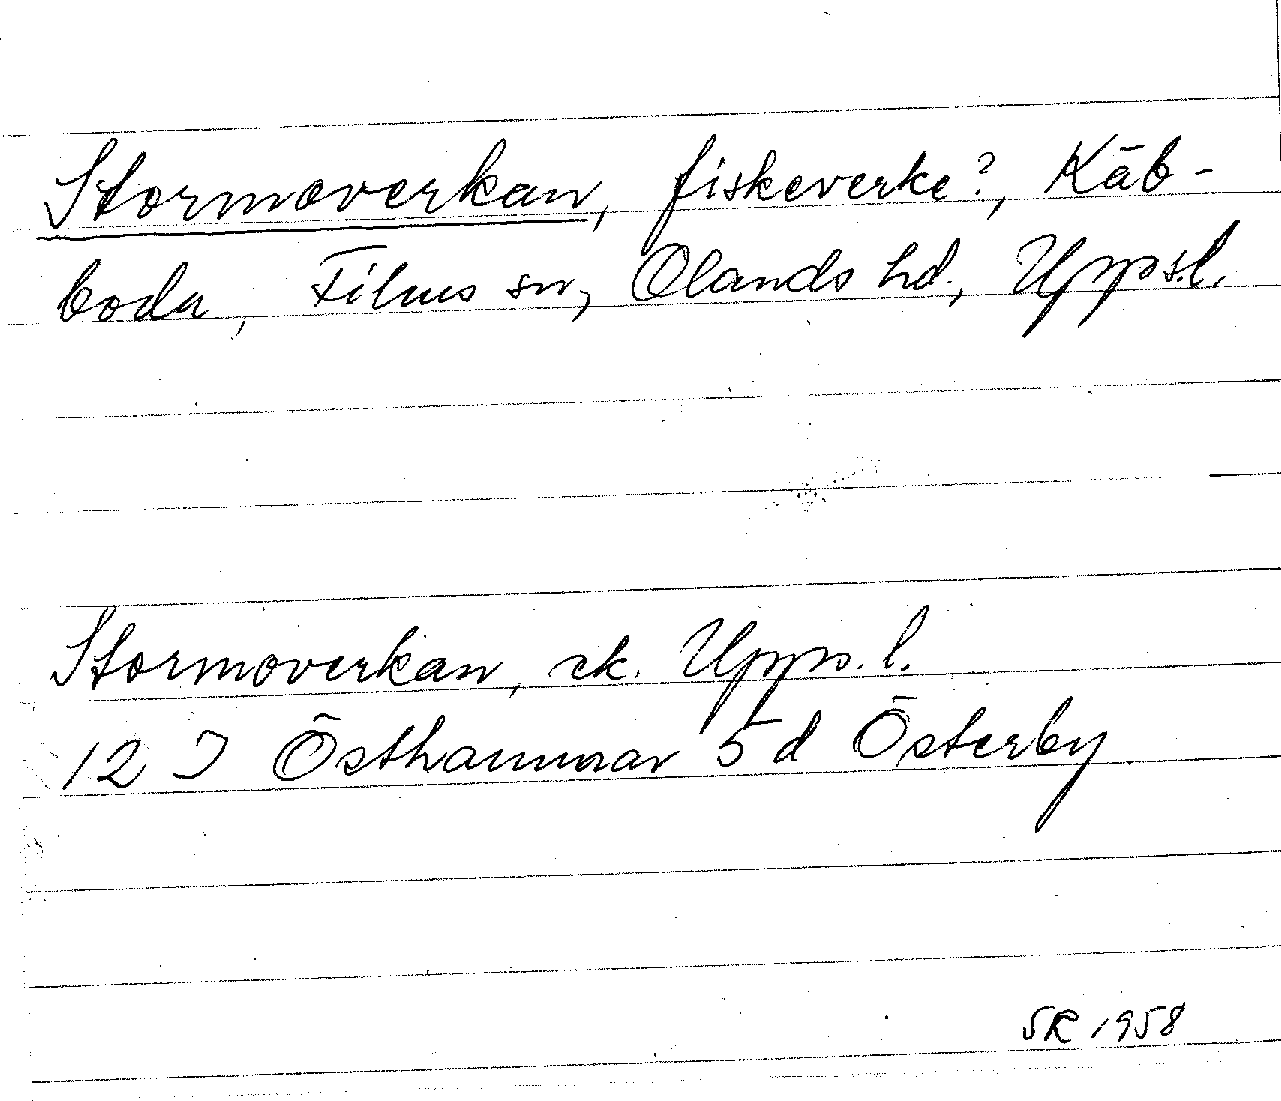 Stormoverkan, fiskeverke?, Käb-
boda, Films sn, Olands hd., Upps.l.
Stormoverkan, ek. Upps. l.
12 I Östhammar 5 d Österby
SR 1958